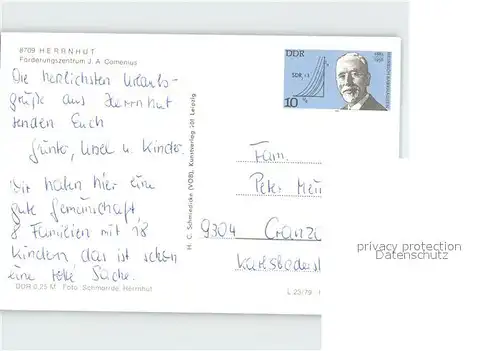 8709 HERRNHUT
Förderungszentrum J. A. Comenius
Die herzlichsten Urlaubs-
grüße aus Herrnhut
senden Euch
Günter, Ursel u. Kinder.
Wir haben hier eine
gute Gemeinschaft,
8 Familien mit 18
Kindern das ist schon
eine tolle Sache.
DDR 0,25 M Foto: Schmorrde, Herrnhut
H. C. Schmiedicke (VOB), Kunstverlag 701 Leipzig
DDR
10
Fam.
Peter
9304
Karlsbaderst
L 23/79
privacy protection
Datenschutz